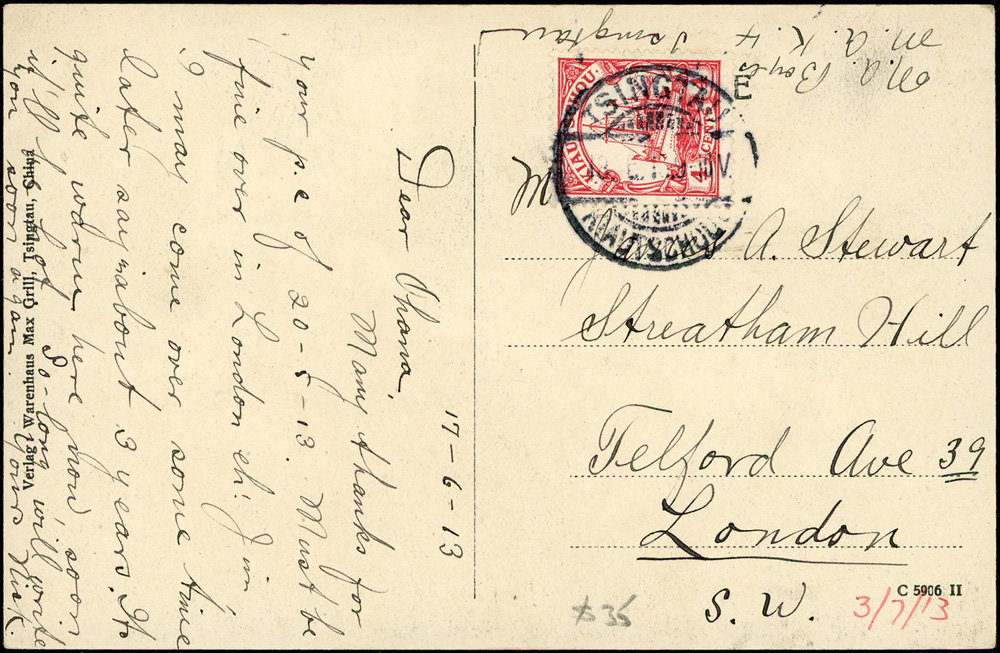 17-6-13
Dear Ohama,
Many thanks for
your p.c of 20-5-13. Must be
fine over in London eh! Jim
I may come over some time
later say about 3 years. It's
quite warm here now, soon
it'll be hot So-long will write
you soon again. Yours Nick.
Verlag: Warenhaus Max Grill, Tsingtau, China
M. A. K. 4 Tsingtau
KIAUTSCHOU
4 CENTS
TSINGTAU
DEUTSCHE
E
M
A. Stewart
Streatham Hill
Telford Ave 39
London
S. W.
C 5906 II
3/7/13
$35